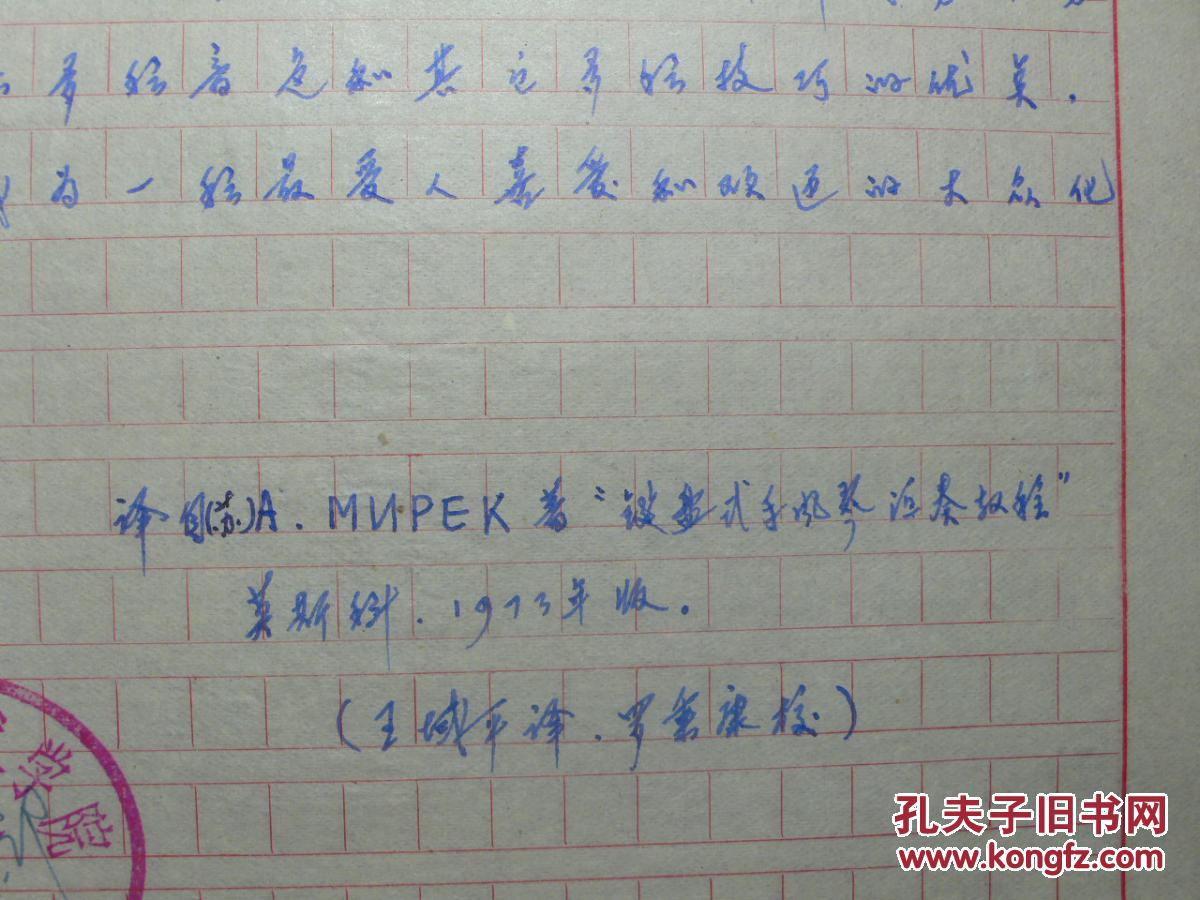 多种音色和其它多种技巧的优美.
为一种最受人喜爱和欢迎的大众化
译自(苏)A. МИРЕК 著“键盘式手风琴演奏教程”
莫斯科. 1973年版.
(王域平译. 罗秉康校)
学院
孔夫子旧书网
www.kongfz.com